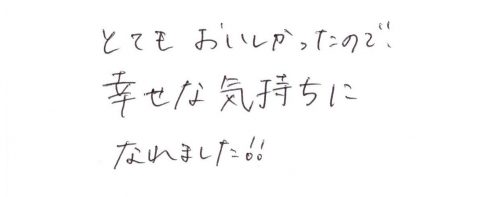 とてもおいしかったので
幸せな気持ちに
なれました!!